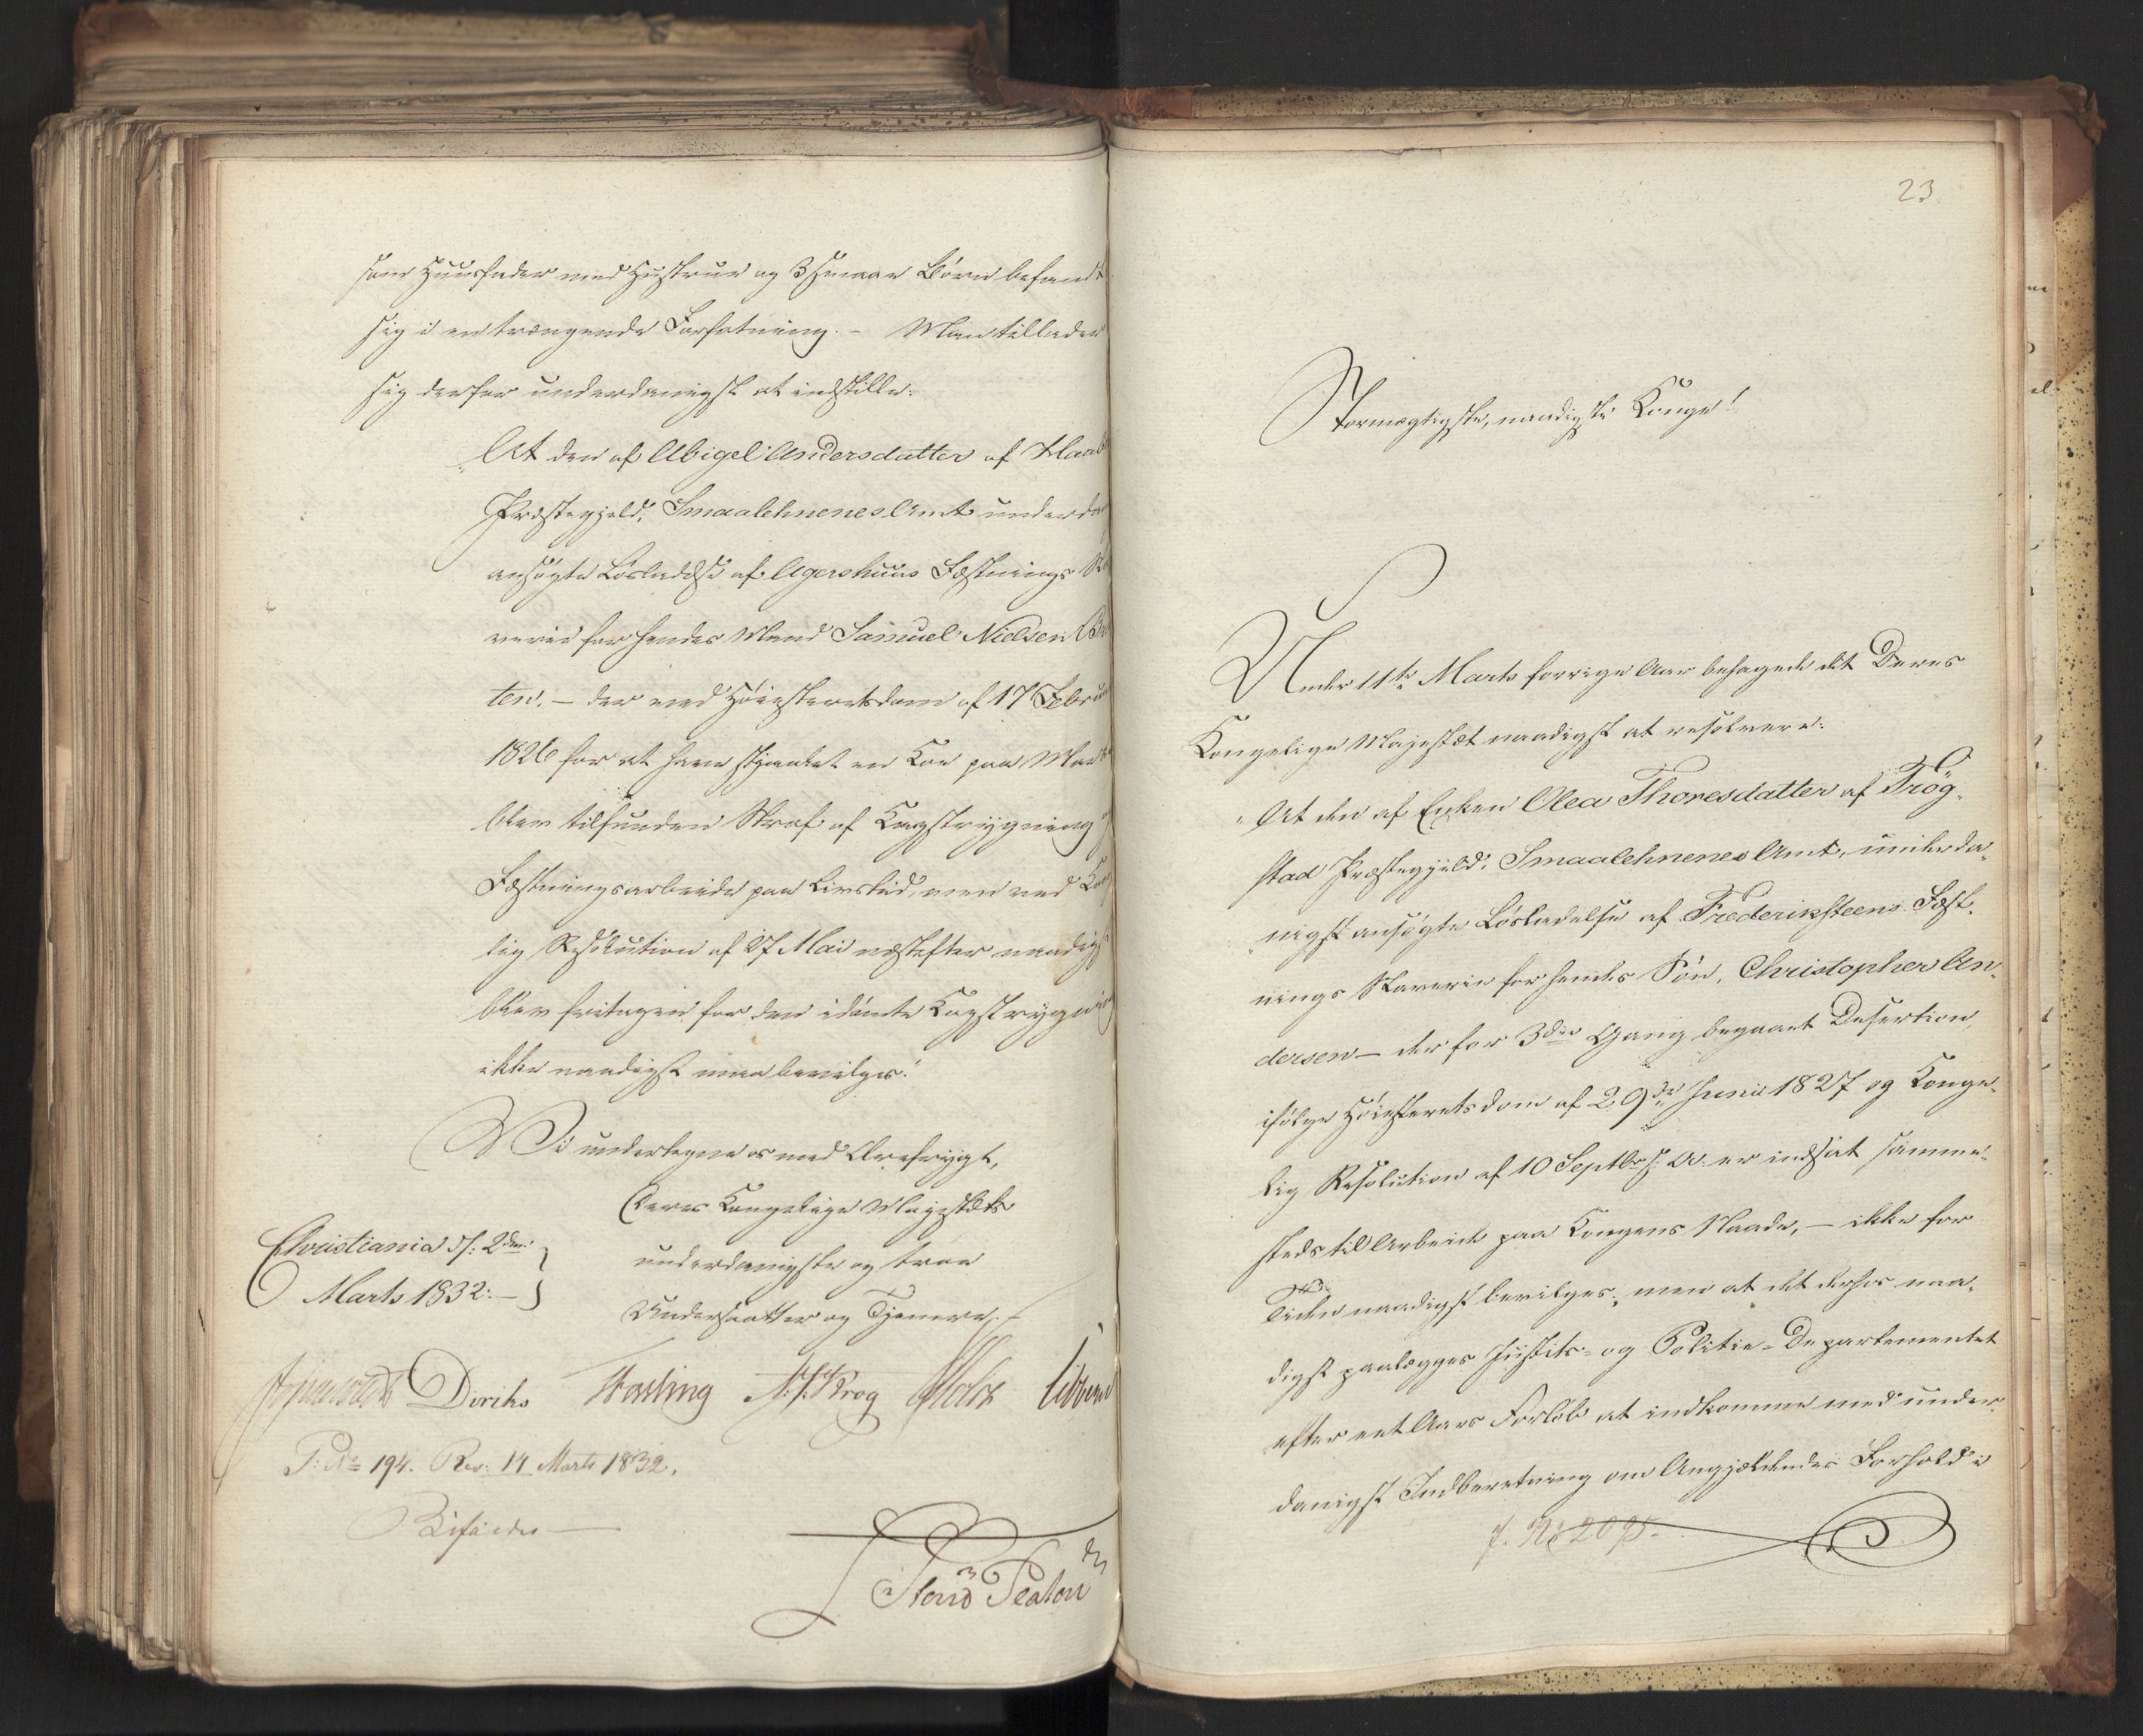 som Huusfader med Hustrue og 3 smaae Børn befandt
sig i en trængende Forfatning. – Man tillader
sig derfor underdanigst at indstille:
„At den af Abigel Andersdatter af Haab
Præstegjeld, Smaalehnenes Amt underda
ansøgte Løsladelse af Agershuus Fæstnings Sla
verie for hendes Mand Samuel Nielsen Bra
ten. – der ved Høiesteretsdom af 17 Februa
1826 for at have stjaalet en Koe paa Mark
blev tilfunden Straf af Kagstrygning og
Fæstningsarbeide paa Livstid, men ved Konge
lig Resolution af 27 Mai næstefter naadigst
blev fritagen for den idømte Kagstrygning
ikke naadigst maa bevilges."
Vi undertegne os med Ærefrygt,
Deres Kongelige Majestæts
Christiania d: 2den
underdanigste og troe
Marts 1832. –
Undersaatter og Tjenere. –
Diriks Fasting Krog Holst
P: No 194. Res. 14 Marts 1832.
Bifaldes –
23
Stormægtigste, naadigste Konge!
Under 11te Marts forrige Aar behagede det Deres
Kongelige Majestæt naadigst at resolvere:
„At den af Enken Olea Thoresdatter af Trøg-
stad Præstegjeld, Smaalehnenes Amt, underda-
nigst ansøgte Løsladelse af Frederiksteens Fæst-
nings Slaverie for hendes Søn, Christopher An-
dersen – der for 3die Gang begaaet Desertion,
ifølge Høiesteretsdom af 29de Junii 1827 og Konge-
lig Resolution af 10 Septbr s: A: er indsat samme-
steds til Arbeide paa Kongens Naade, – ikke for
Tiden naadigst bevilges; men at det derhos naa-
digst paalægges Justits- og Politie-Departementet
efter eet Aars Forløb at indkomme med under-
danigst Indberetning om Angjældendes Forhold i